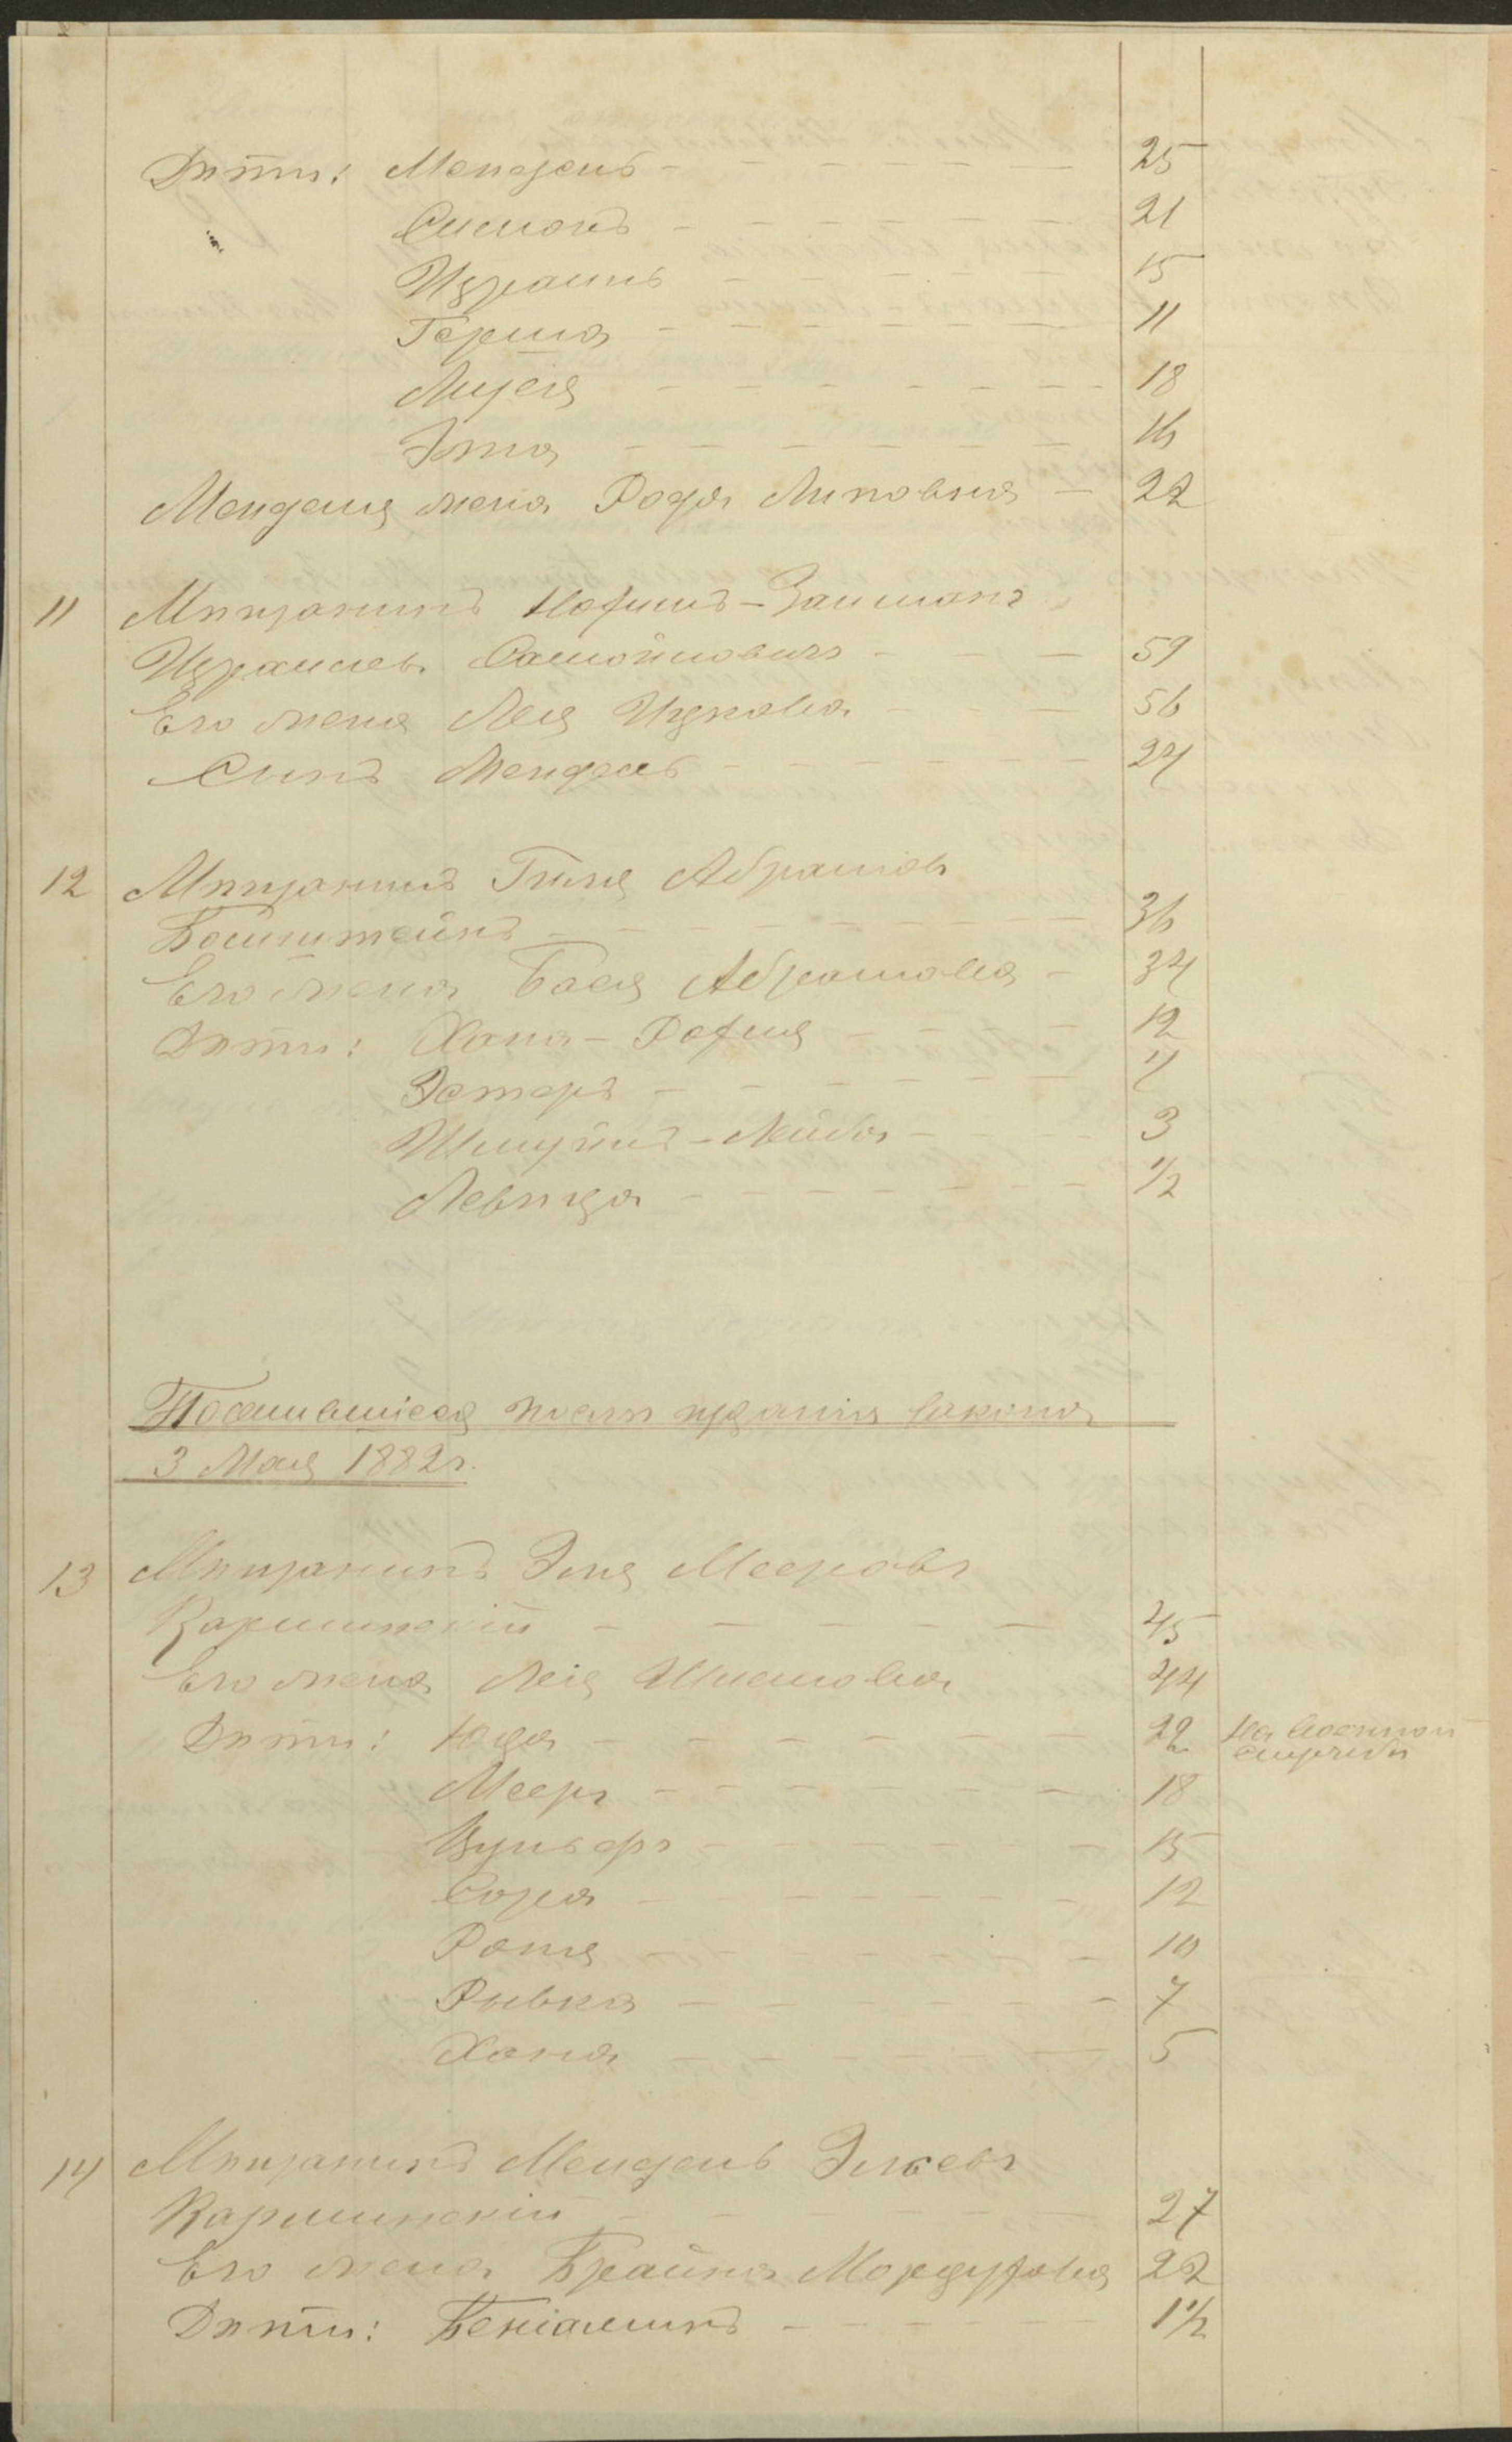 Дѣти: Мендель - - - - - - 25
Симонъ - - - - - - 21
Израиль - - - - - 15
Герша - - - - - - 11
Лизея - - - - - - - 18
Эта - - - - - - 16
Менделя жена Рода Липовна - 22
11 Мѣщанинъ Нохимъ-Залманъ
Израилевъ Самойловичъ - - - 59
Его жена Лея Ицкова - - - 56
Сынъ Мендель - - - - - - - 24
12 Мѣщанинъ Гиля Абрамовъ
Вайнштейнъ - - - - - - - - 36
Его жена Бася Абрамовна - 34
Дѣти: Хана-Рохля - - - - 12
Эстеръ - - - - - - - 4
Шмуйлъ-Лейба - - - - 3
Левица - - - - - - - - 1/2
Поселившіеся послѣ изданія закона
3 Мая 1882 г.
13 Мѣщанинъ Эля Мееровъ
Каршинскій - - - - - 45
Его жена Лея Шлемовна 44
Дѣти: Юда - - - - - - - 22 На военной
службѣ
Мееръ - - - - - - 18
Вульфъ - - - - - - - 15
Сора - - - - - - - 12
Роня - - - - - - - 10
Ривка - - - - - - - 7
Хана - - - - - - - 5
14 Мѣщанинъ Мендель Элкевъ
Каршинскій - - - - 27
Его жена Брайна Мордуховна 22
Дѣти: Беніаминъ - - - - 1 1/2